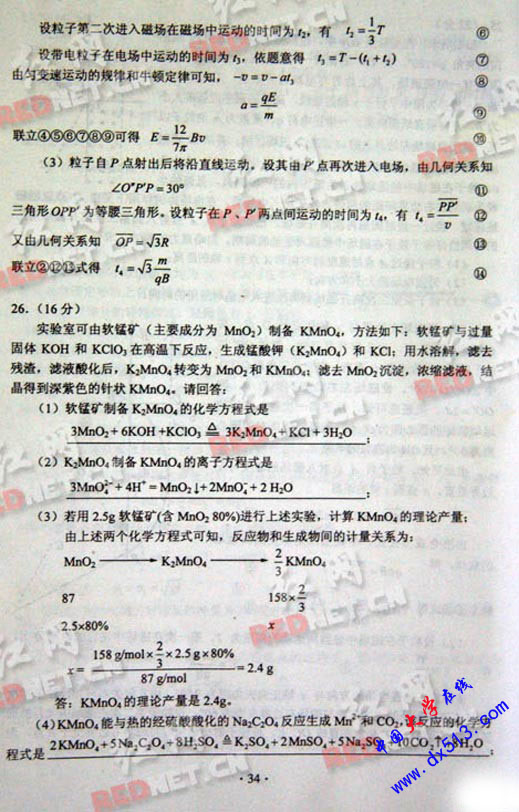 设粒子第二次进入磁场在磁场中运动的时间为 t₂，有 t₂=\frac{1}{3}T ⑥
设带电粒子在电场中运动的时间为 t₃，依题意得 t₃=T−(t₁+t₂) ⑦
由匀变速运动的规律和牛顿定律可知，−v=v−at₃ ⑧
a=\frac{qE}{m} ⑨
联立④⑤⑥⑦⑧⑨可得 E=\frac{12}{7π}Bv ⑩
（3）粒子自 P 点射出后将沿直线运动。设其由 P′ 点再次进入电场，由几何关系知
∠O″P′P=30° ⑪
三角形 OPP′ 为等腰三角形。设粒子在 P、P′ 两点间运动的时间为 t₄，有 t₄=\frac{PP′}{v} ⑫
又由几何关系知 OP=√3R ⑬
联立②⑫⑬式得 t₄=√3\frac{m}{qB} ⑭
26.（16 分）
实验室可由软锰矿（主要成分为 MnO₂）制备 KMnO₄，方法如下：软锰矿与过量
固体 KOH 和 KClO₃ 在高温下反应，生成锰酸钾（K₂MnO₄）和 KCl；用水溶解，滤去
残渣，滤液酸化后，K₂MnO₄ 转变为 MnO₂ 和 KMnO₄；滤去 MnO₂ 沉淀，浓缩滤液，结
晶得到深紫色的针状 KMnO₄。请回答：
（1）软锰矿制备 K₂MnO₄ 的化学方程式是
3MnO₂+6KOH+KClO₃ ≜ 3K₂MnO₄+KCl+3H₂O ；
（2）K₂MnO₄ 制备 KMnO₄ 的离子方程式是
3MnO₄²⁻+4H⁺=MnO₂↓+2MnO₄⁻+2H₂O ；
（3）若用 2.5g 软锰矿(含 MnO₂ 80%)进行上述实验，计算 KMnO₄ 的理论产量；
由上述两个化学方程式可知，反应物和生成物间的计量关系为：
MnO₂ ⟶ K₂MnO₄ ⟶ \frac{2}{3} KMnO₄
87 158×\frac{2}{3}
2.5×80% x
x=\frac{158 g/mol×\frac{2}{3}×2.5 g×80%}{87 g/mol}=2.4 g
答：KMnO₄ 的理论产量是 2.4g。
(4)KMnO₄ 能与热的经硫酸酸化的 Na₂C₂O₄ 反应生成 Mn²⁺ 和 CO₂，该反应的化学方
程式是 2KMnO₄+5Na₂C₂O₄+8H₂SO₄ ≜ K₂SO₄+2MnSO₄+5Na₂SO₄+10CO₂↑+8H₂O ；
·34·
红网
REDNET.CN
中国大学在线
www.dx513.com